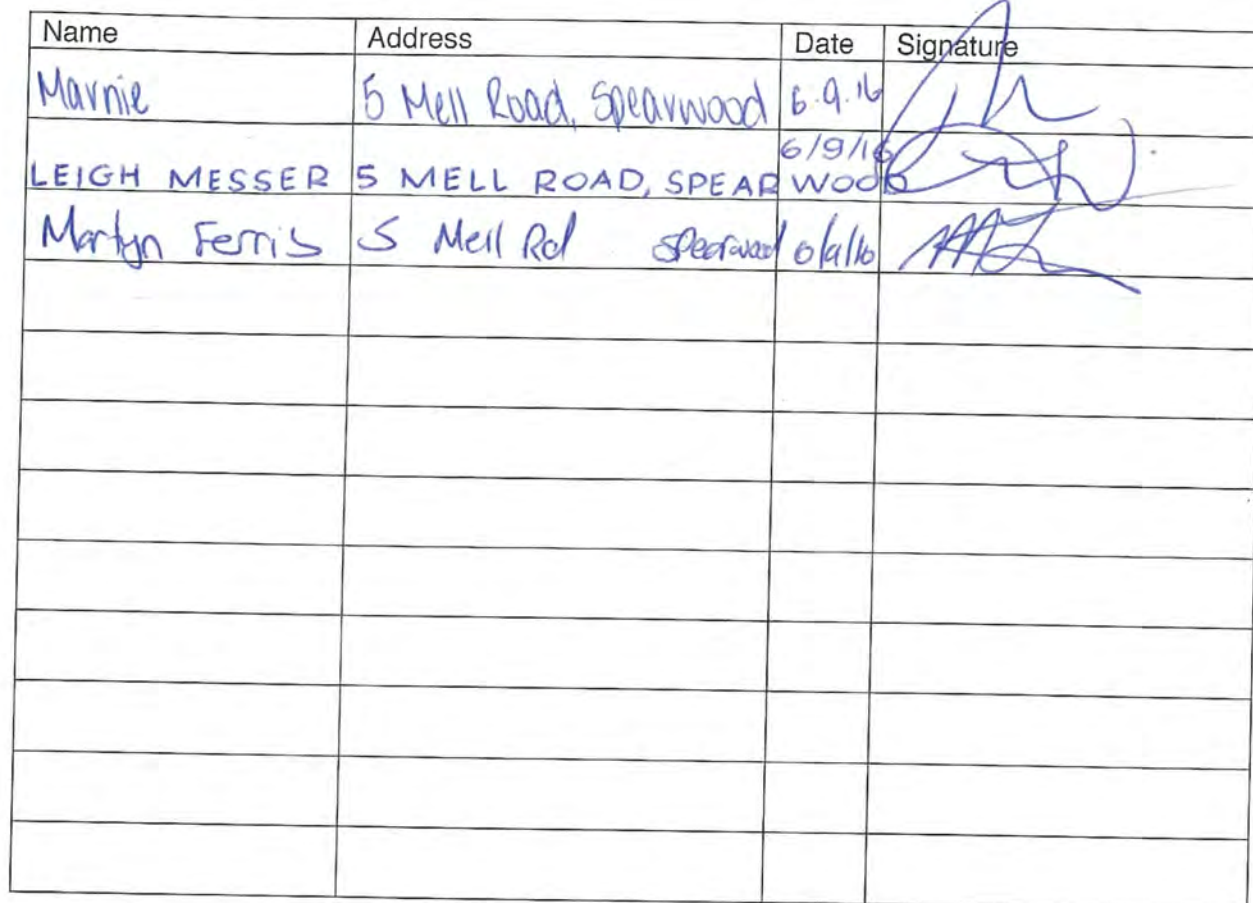 Name Address Date Signature
Marnie 5 Mell Road, Spearwood 6.9.16
6/9/16
LEIGH MESSER 5 MELL ROAD, SPEARWOOD
Martyn Ferris 5 Mell Rd Spearwood 6/9/16